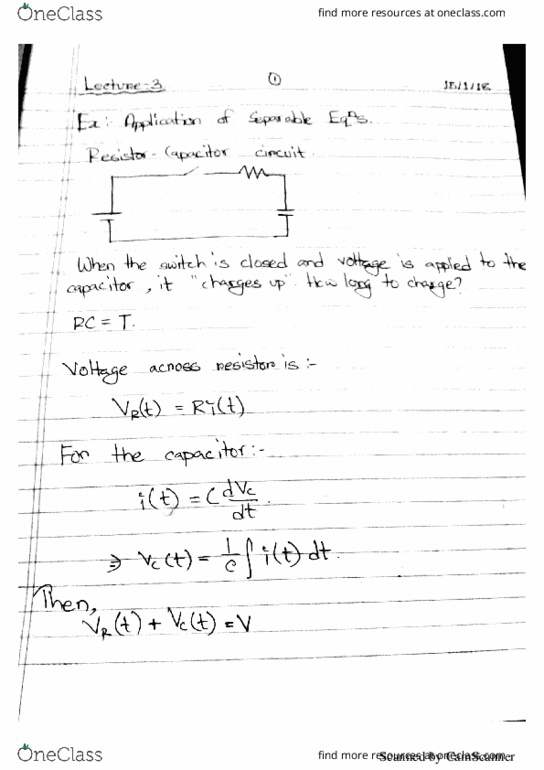 OneClass
find more resources at oneclass.com
Lecture-3
1
15/1/18
Ex: Application of Separable Eqⁿs.
Resistor-Capacitor circuit.
When the switch is closed and voltage is appled to the
capacitor, it "charges up". How long to charge?
RC = T.
Voltage across resistor is :-
V_R(t) = Ri(t)
For the capacitor:-
i(t) = C dVc/dt.
⇒ Vc(t) = 1/C ∫ i(t) dt.
Then,
V_R(t) + Vc(t) = V
OneClass
find more resources at oneclass.com
Scanned by CamScanner